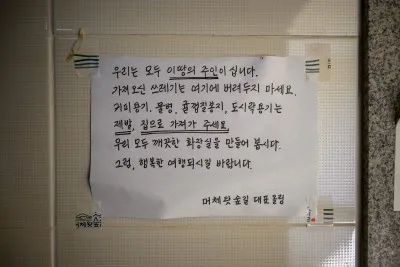 우리는 모두 이땅의 주인이십니다.
가져오신 쓰레기는 여기에 버려두지 마세요.
커피용기, 물병, 귤껍질봉지, 도시락용기는
제발, 집으로 가져가 주세요.
우리 모두 깨끗한 화장실을 만들어 봅시다.
그럼, 행복한 여행되시길 바랍니다.
머체왓숲길 대표 올림
머체왓숲